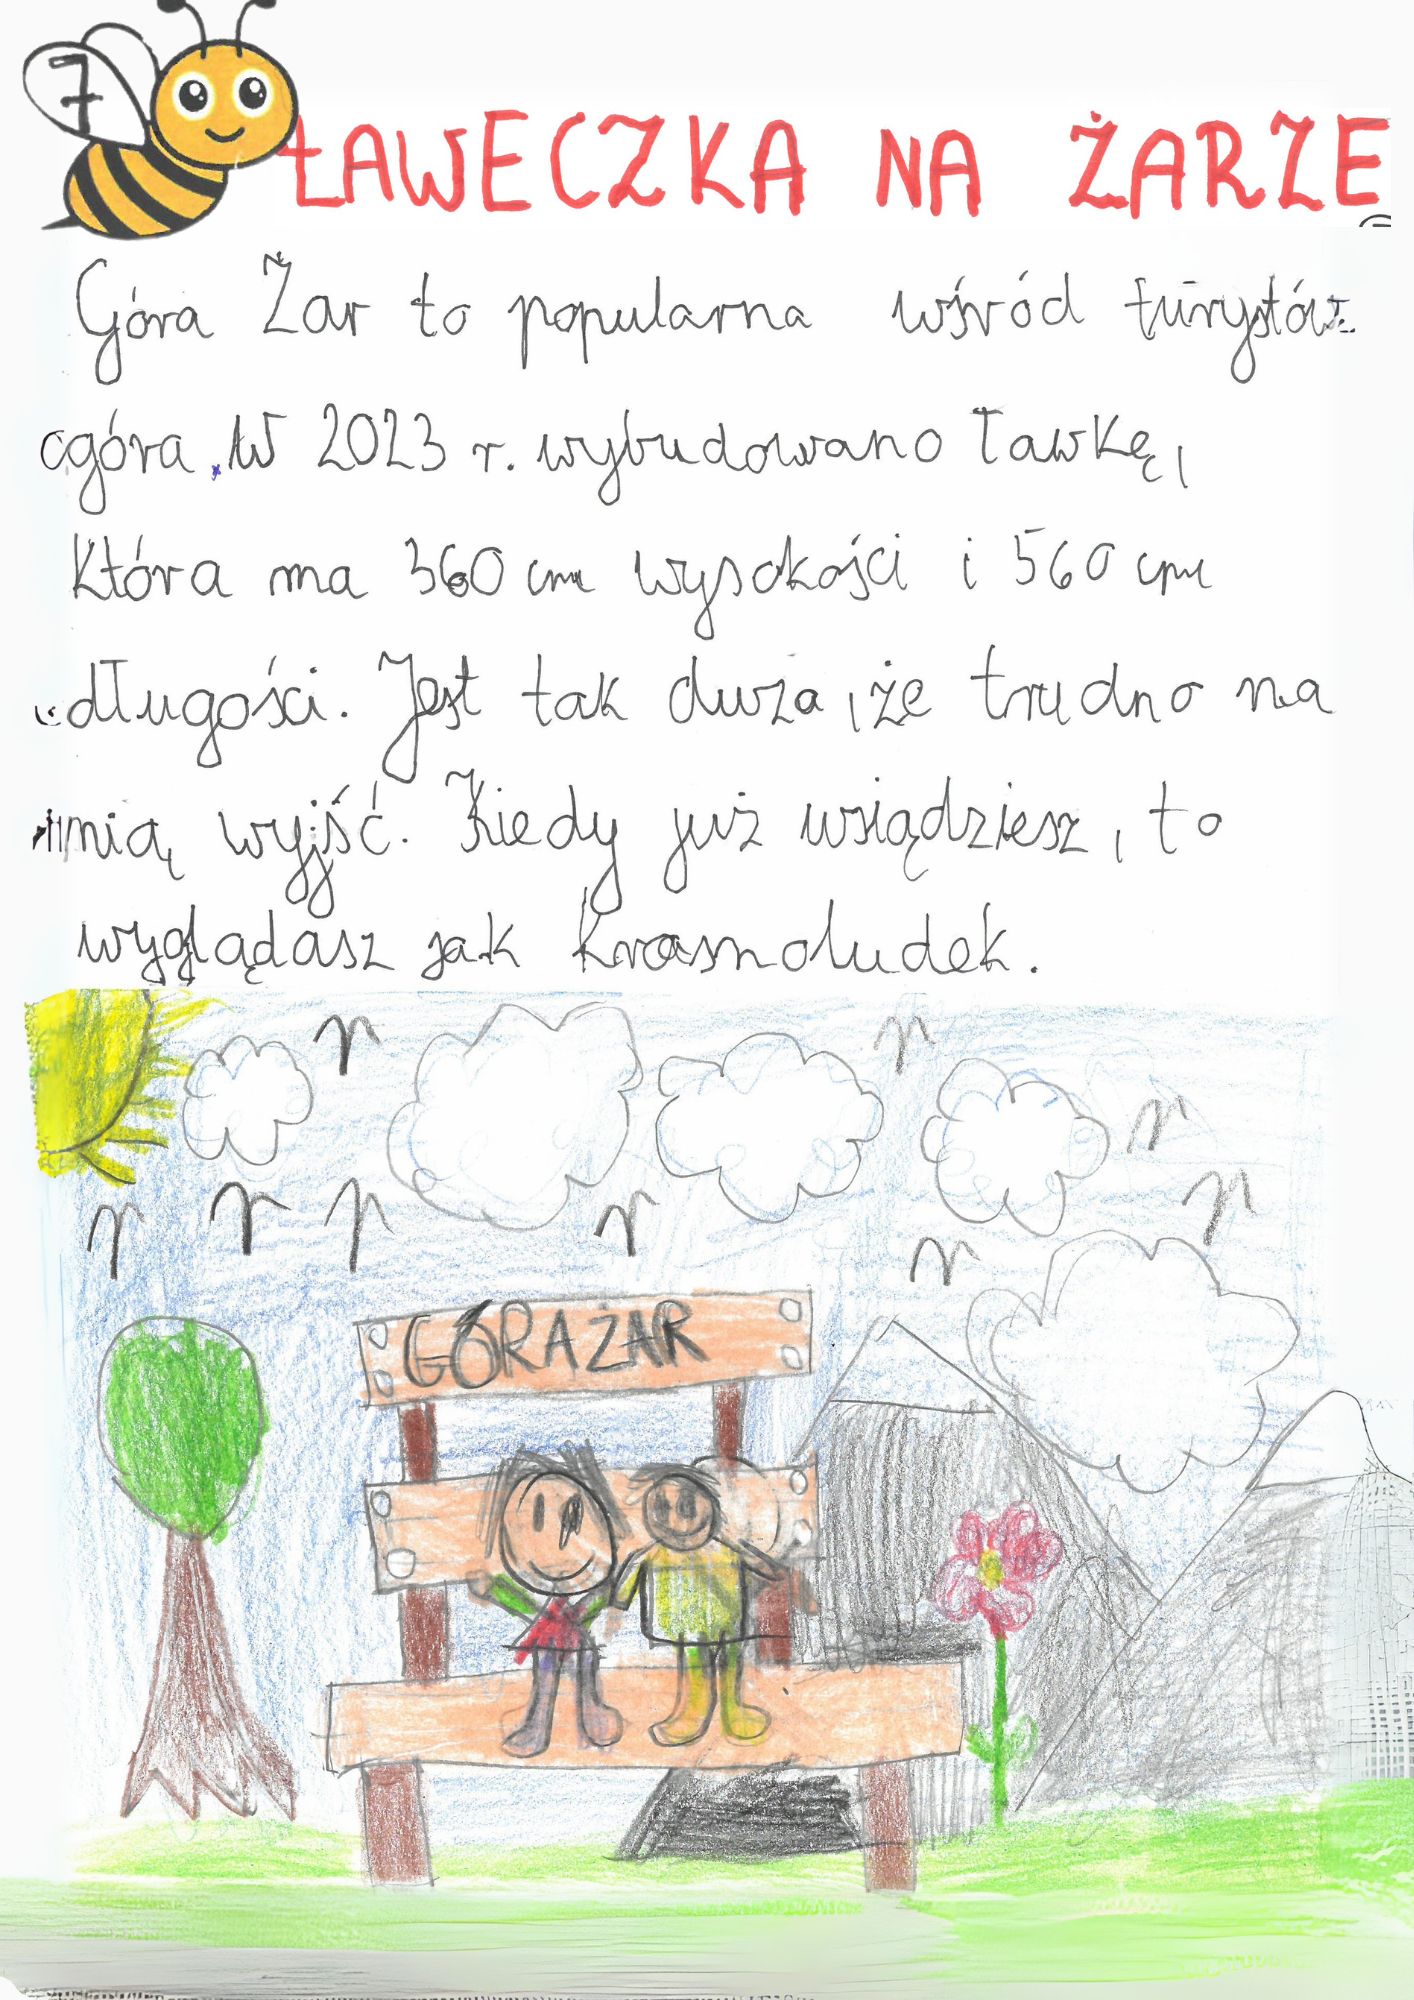 7
ŁAWECZKA NA ŻARZE
Góra Żar to popularna wśród turystów
góra. W 2023 r. wybudowano ławkę,
która ma 360 cm wysokości i 560 cm
długości. Jest tak duża, że trudno na
nią wyjść. Kiedy już usiądziesz, to
wyglądasz jak krasnoludek.
GÓRA ŻAR